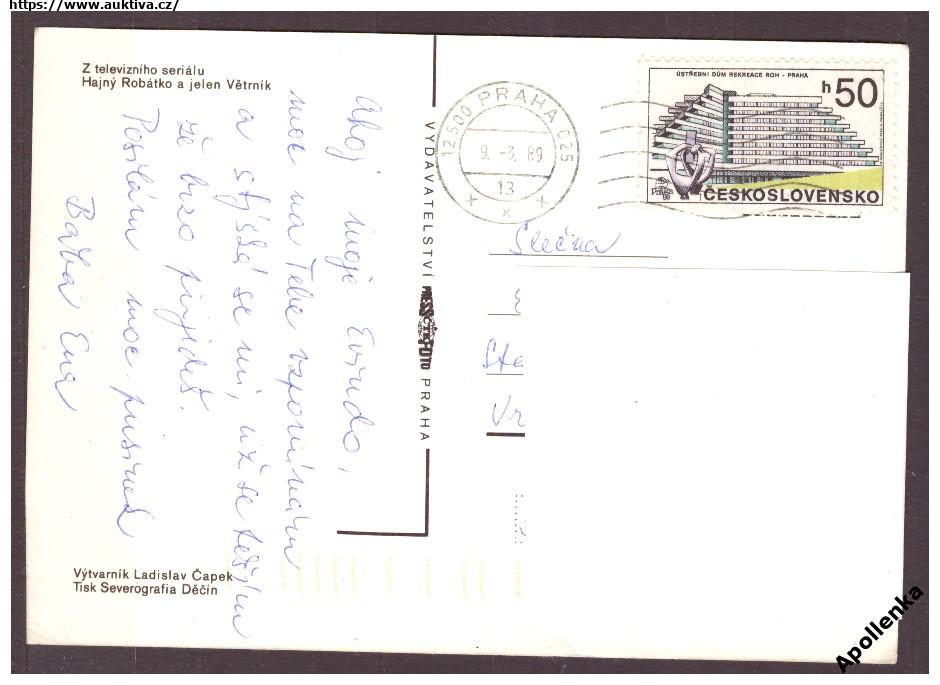 https://www.auktiva.cz/
Z televizního seriálu
Hajný Robátko a jelen Větrník
Ahoj moje Evindo,
moc na Tebe vzpomínám
a stýská se mi, už se těším
že brzo přijedeš.
Posílám moc pusinek
Bába Ena
Výtvarník Ladislav Čapek
Tisk Severografia Děčín
VYDAVATELSTVÍ PRESSFOTO PRAHA
12500 PRAHA 025
9. -3. 89
13
ÚSTŘEDNÍ DŮM REKREACE ROH - PRAHA
h 50
ČESKOSLOVENSKO
Slečna
Sta
Vr
Apollenka